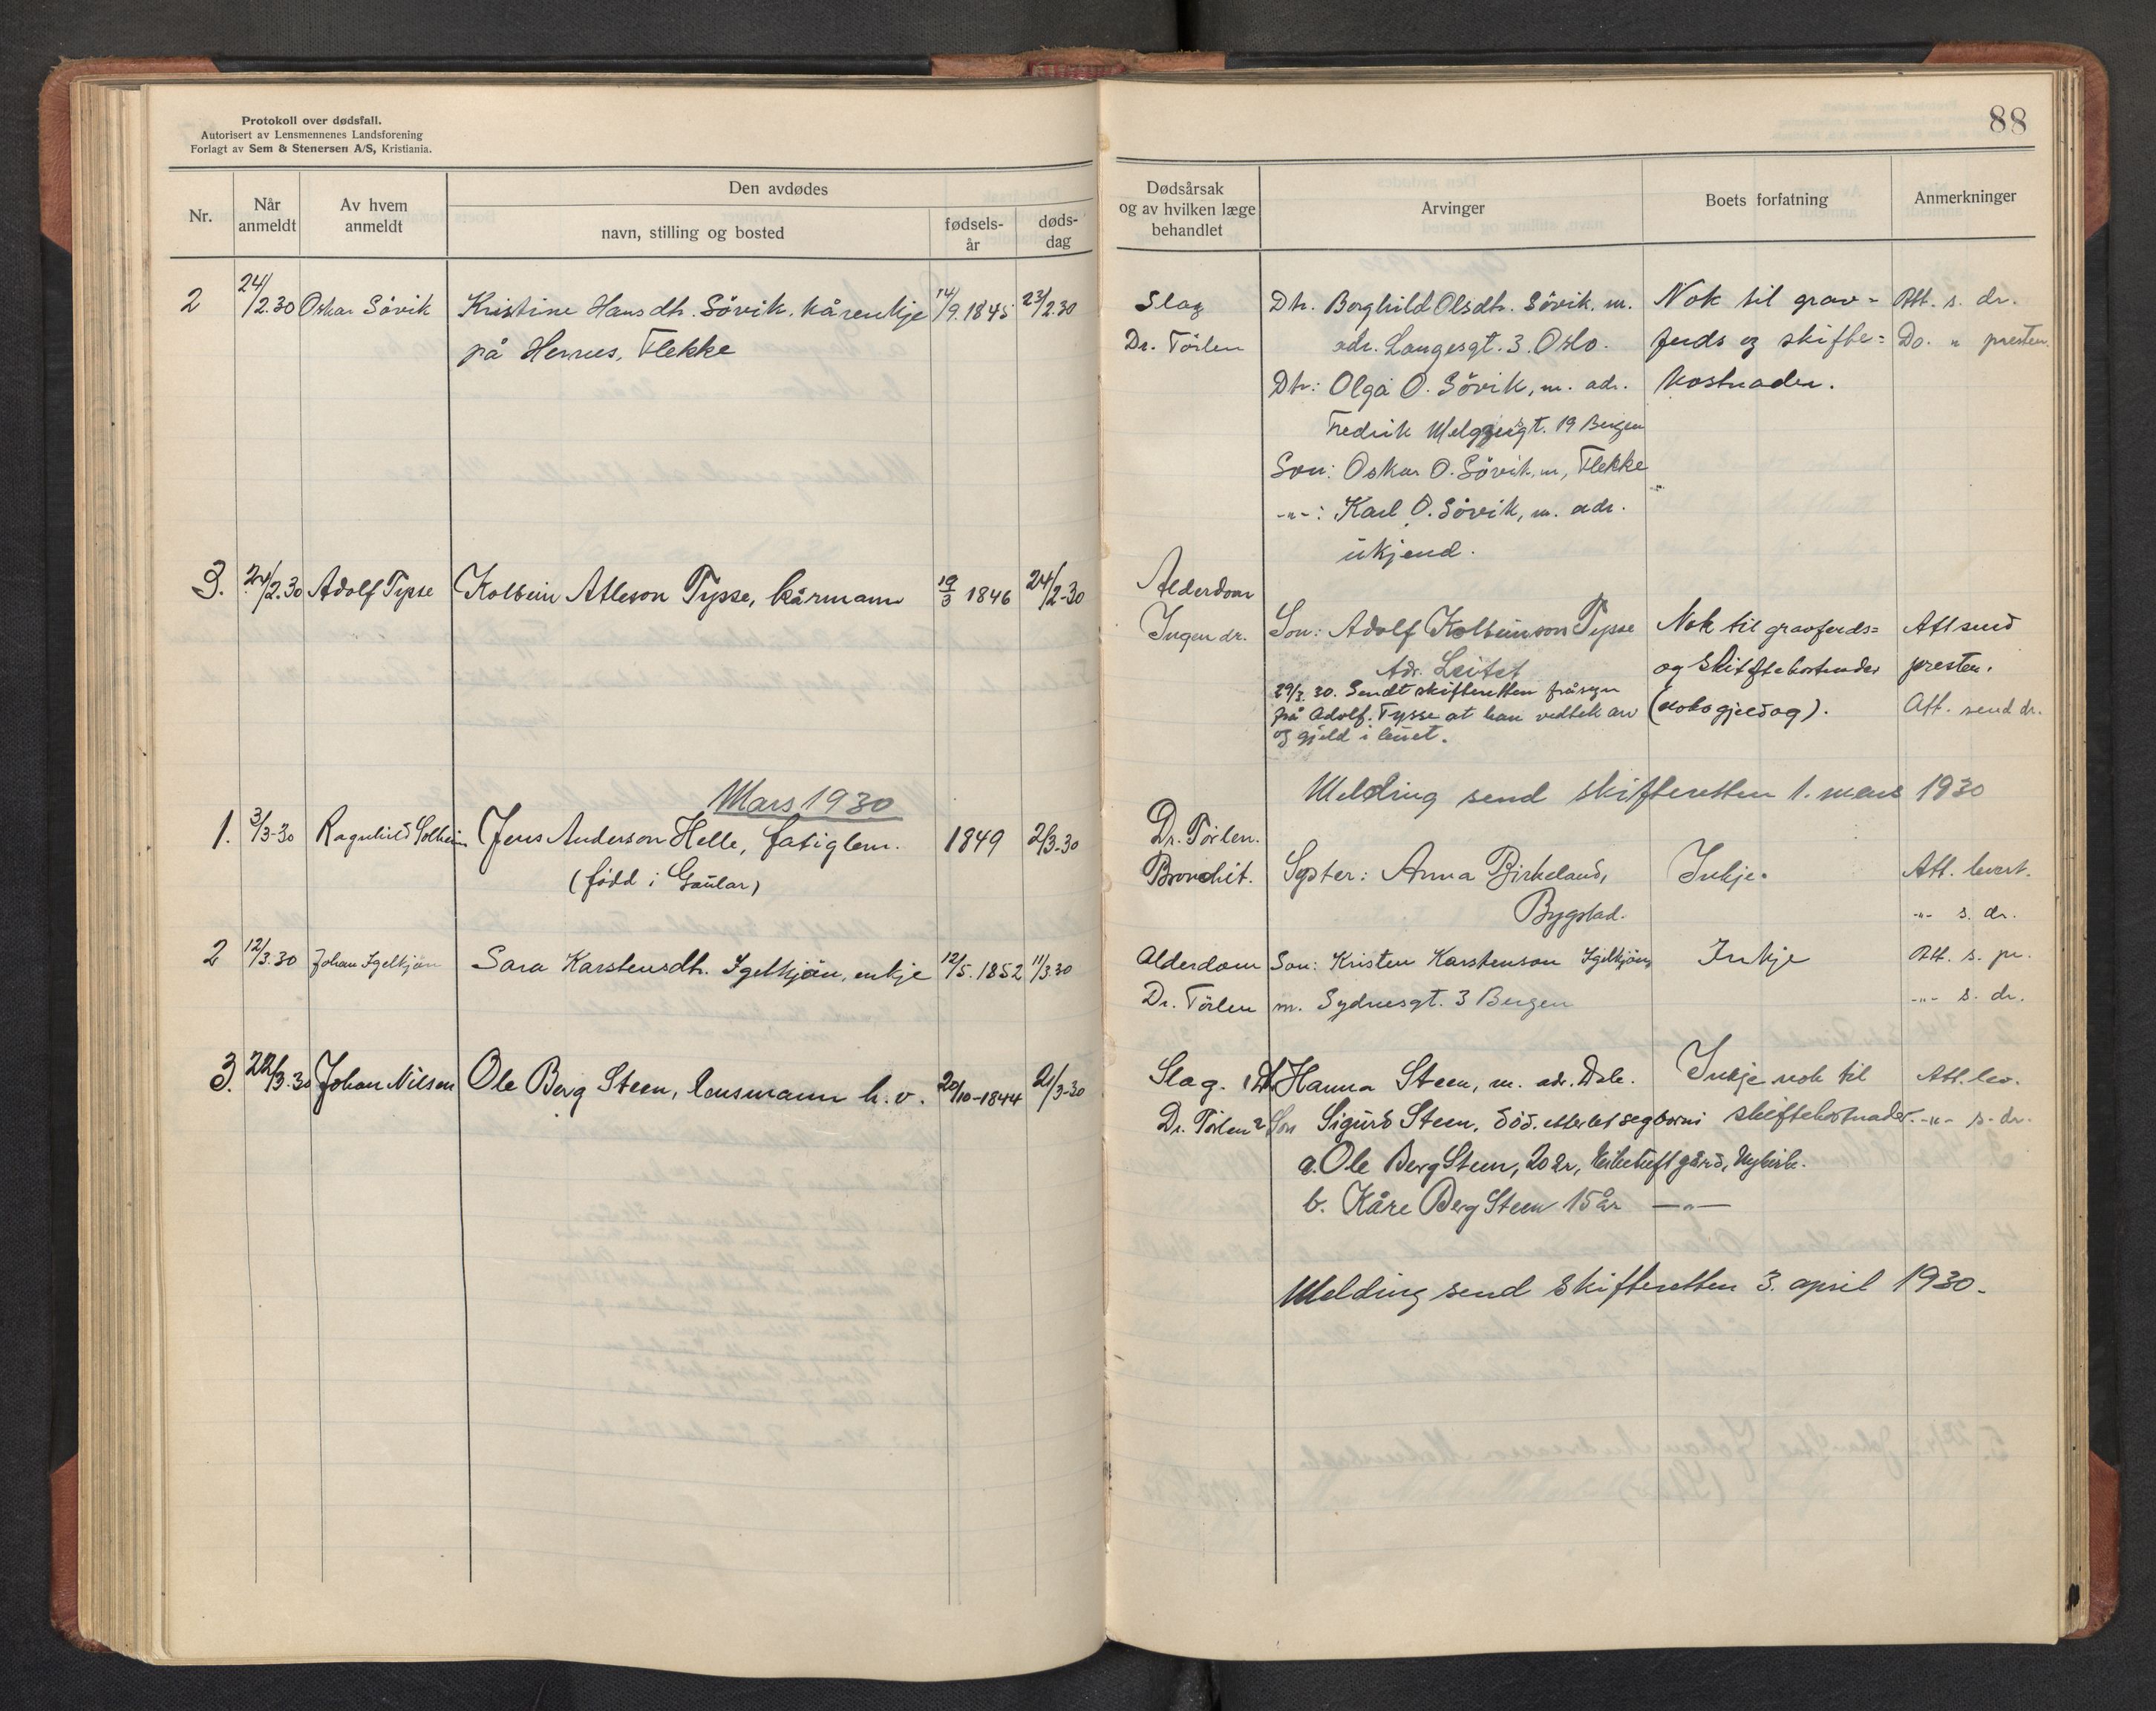 Protokoll over dødsfall.
Autorisert av Lensmennenes Landsforening
Forlagt av Sem & Stenersen A/S, Kristiania.
Nr.
Når anmeldt
Av hvem anmeldt
Den avdødes
navn, stilling og bosted
fødsels-år
døds-dag
2 24/2.30 Oskar Sövik Kristine Hansdtr. Sövik, kårenkje 14/9.1845 23/2.30
på Hernes, Flekke
3. 24/2.30 Adolf Tysse Kolbein Atleson Tysse, kårmann 19/3 1846 24/2-30
Mars 1930
1. 3/3-30 Ragnhild Solheim Jens Anderson Helle, fatiglem. 1849 2/3-30
(född i Gaular)
2 12/3.30 Johan Igelkjön Sara Karstensdtr. Igelkjön, enkje 12/5.1852 11/3.30
3. 22/3.30 Johan Nilsen Ole Berg Steen, lensmann h.v. 20/10-1844 21/3-30
88
Dødsårsak og av hvilken læge behandlet
Arvinger
Boets forfatning
Anmerkninger
Slag Dtr. Borghild Olsdtr. Sövik. m. Nok til grav= Att. s. dr.
Dr. Törlen adr. Langesgt. 3. Oslo. ferds og skifte= Do. " presten.
Dtr: Olga O. Sövik, m. adr. kostnader.
Fredrik Melgzersgt. 19 Bergen
Son: Oskar O. Sövik, m, Flekke
-"-: Karl O. Sövik, m. adr.
ukjend.
Alderdom
Ingen dr. Son: Adolf Kolbeinson Tysse Nok til gravferds= Att send
Adr. Leitet og Skiftekostnader presten.
29/3.30. Sendt skifteretten fråsegn
på Adolf Tysse at han vedtek arv (noko gjeld og). Att. send dr.
og gjeld i buet.
Melding send skifteretten 1. mars 1930
Dr. Törlen.
Bronchit. Syster: Anna Birkeland, Inkje. Att. levert.
Bygstad. -"- s. dr.
Alderdom Son: Kristen Karstenson Igelkjön, Inkje Att. s. pr.
Dr. Törlen m. Sydnesgt. 3 Bergen -"- s. dr.
Slag. 1 Dtr Hanna Steen, m. adr. Dale. Inkje nok til Att. lev.
Dr. Törlen 2 Son Sigurd Steen, död. etterlet seg borni skiftekostnader. -"- s. dr.
a. Ole Berg Steen, 20 år, gård,
b. Kåre Berg Steen 15 år —"—
Melding send Skifteretten 3. april 1930.